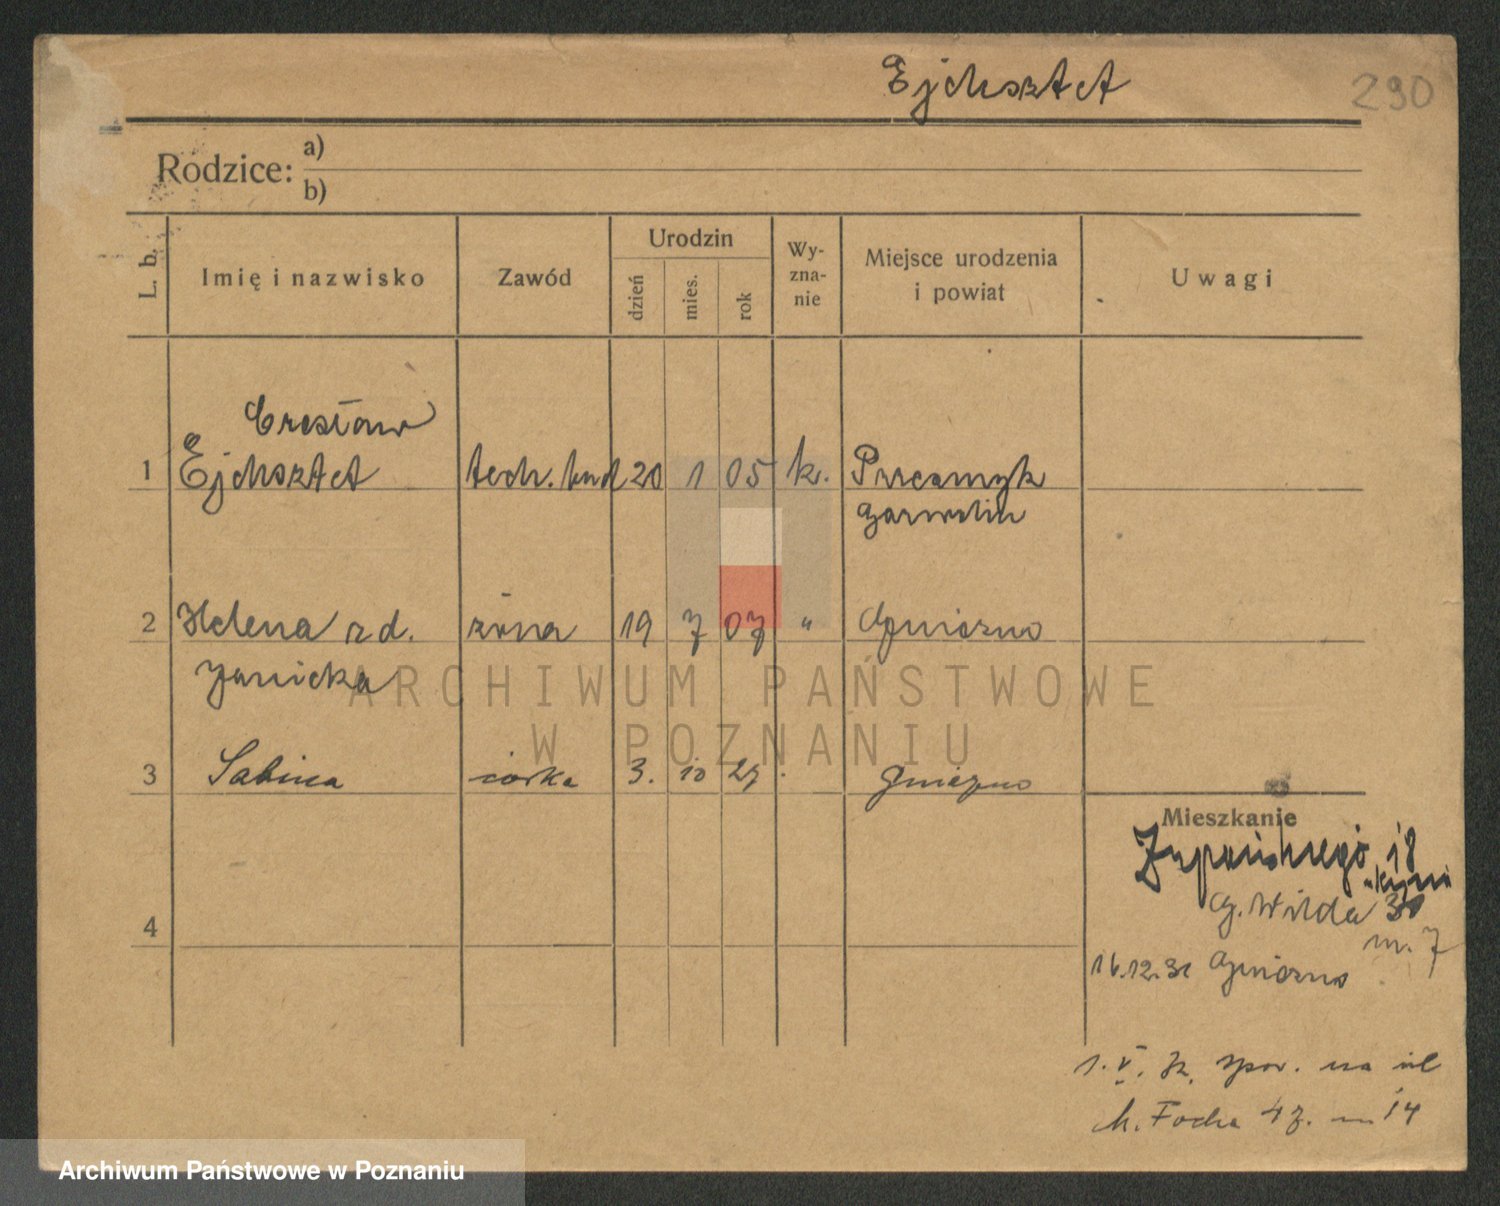 Ejchsztet 290
Rodzice: a)
b)
L. b.
Imię i nazwisko
Zawód
Urodzin
dzień
mies.
rok
Wy-
zna-
nie
Miejsce urodzenia
i powiat
Uwagi
Czesław
1 Ejchsztet tech. bud 20 1 05 k. Przesmyk
Garwolin
2 Helena zd. żona 19 7 07 " Gniezno
Janicka
3 Sabina córka 3. 10 27 Gniezno
4
Mieszkanie
Żupańskiego 18
G. Wilda 31
m. 7
16.12.31 Gniezno
1. V. spow. na ul
M. Focha 47. m 14
ARCHIWUM PAŃSTWOWE
W POZNANIU
Archiwum Państwowe w Poznaniu